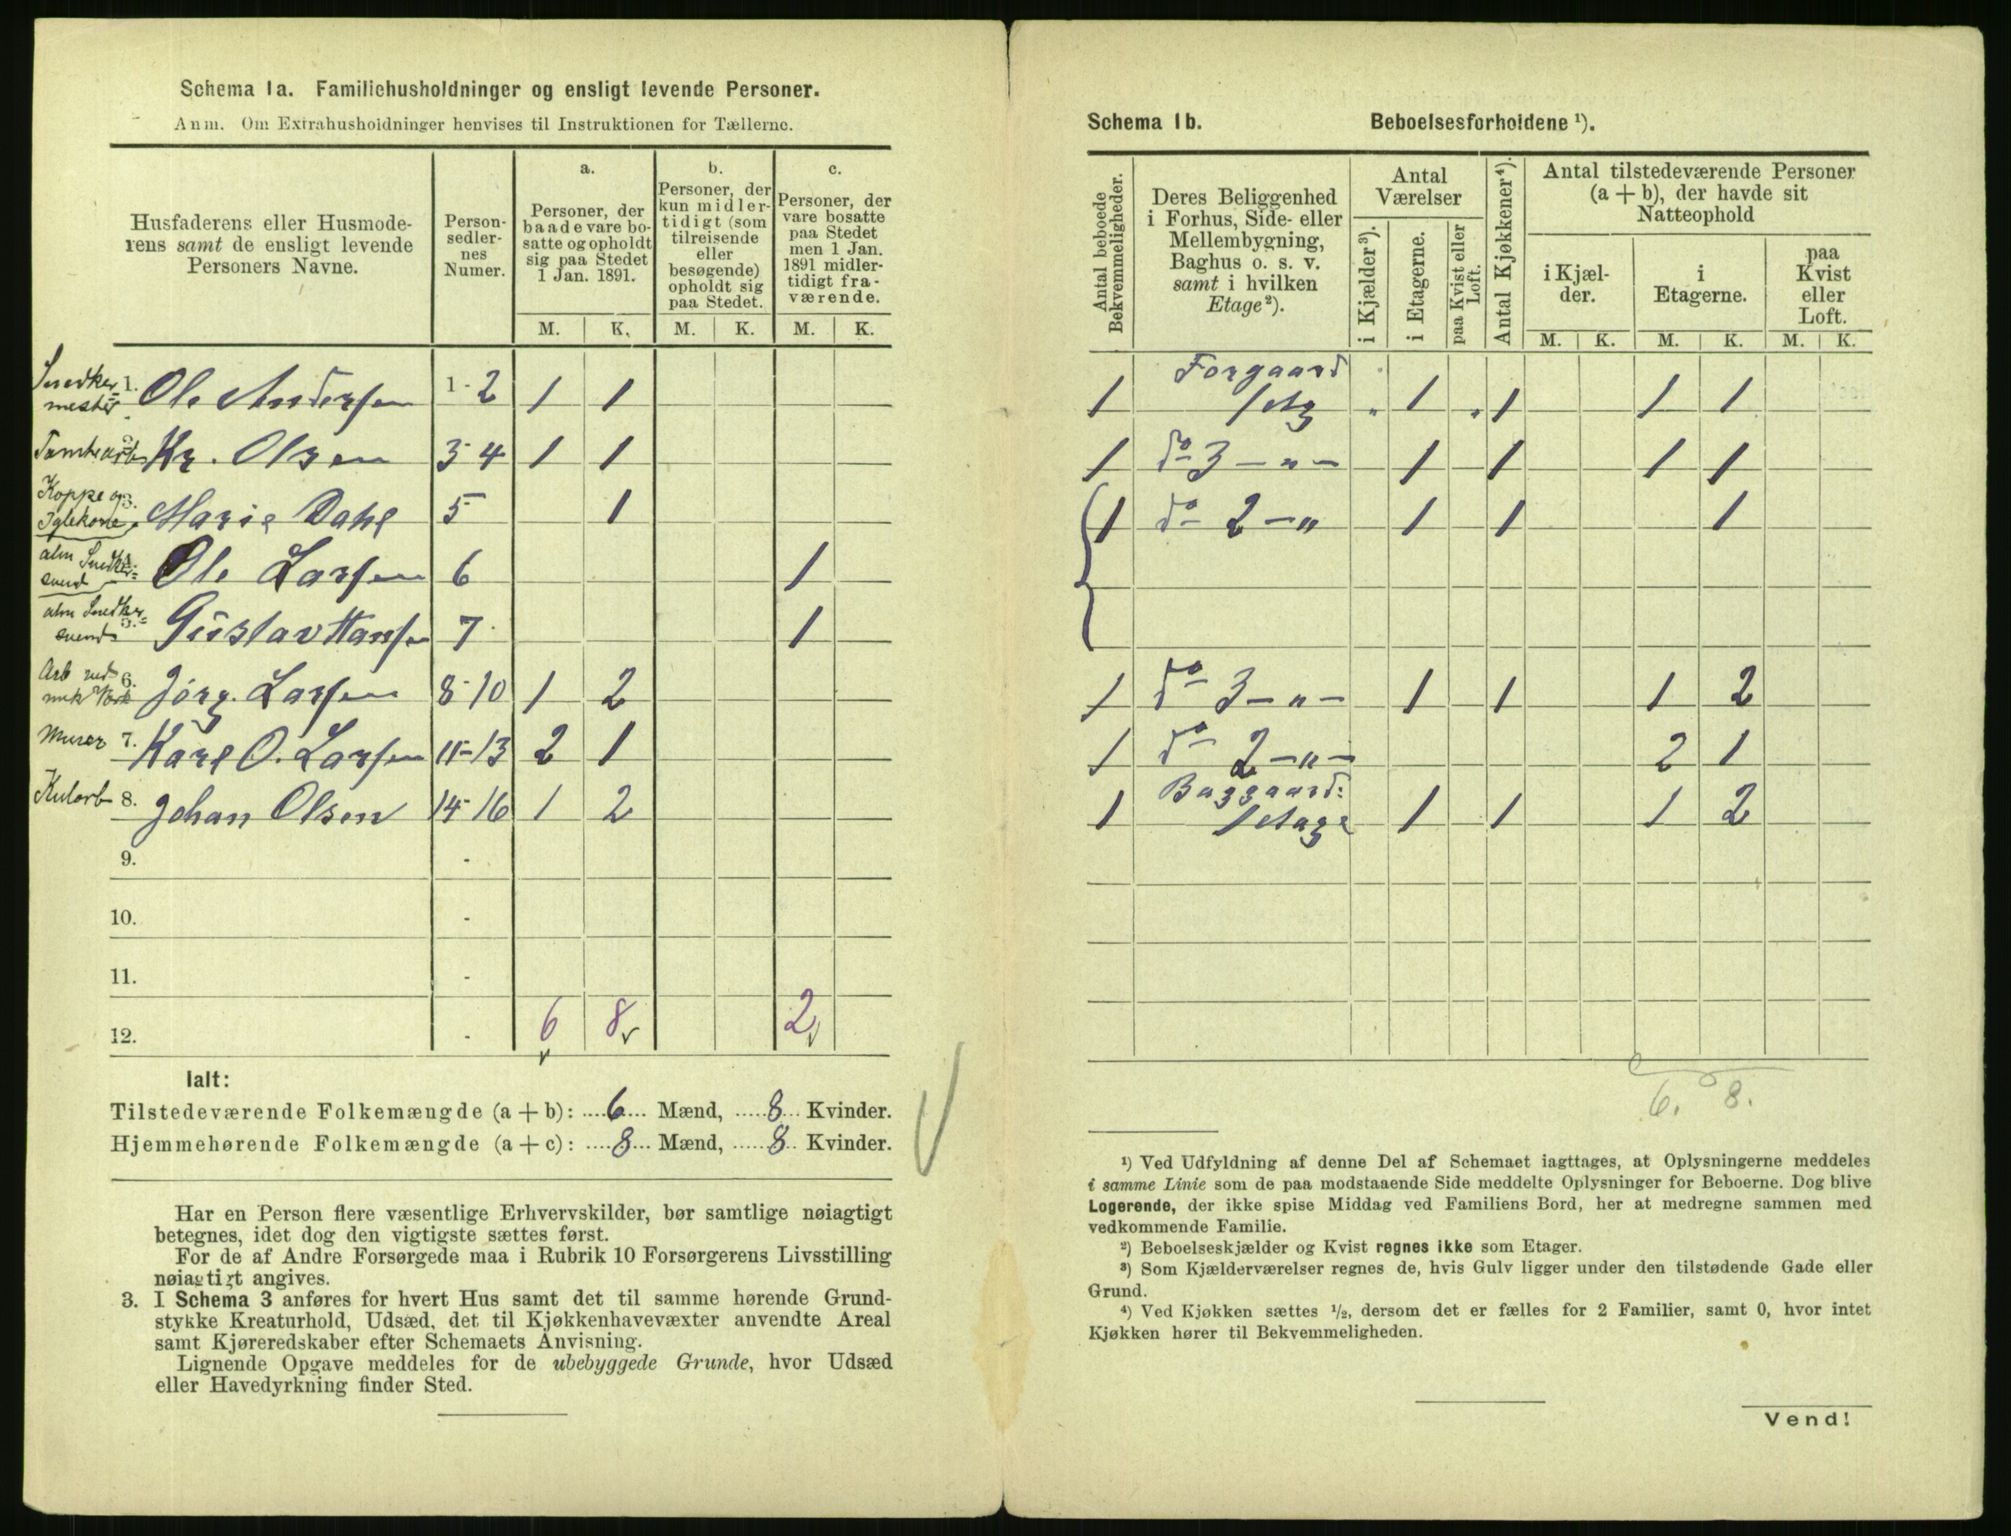 Schema 1a. Familiehusholdninger og ensligt levende Personer.
Anm. Om Extrahusholdninger henvises til Instruktionen for Tællerne.
Husfaderens eller Husmode-
rens samt de ensligt levende
Personers Navne.
Person-
sedler-
nes
Numer.
a.
Personer, der
baade vare bo-
satte og opholdt
sig paa Stedet
1 Jan. 1891.
b.
Personer, der
kun midler-
tidigt (som
tilreisende
eller
besøgende)
opholdt sig
paa Stedet.
c.
Personer, der
vare bosatte
paa Stedet
men 1 Jan.
1891 midler-
tidigt fra-
værende.
M. K. M. K. M. K.
Snedker=
mester 1. Ole Andersen 1-2 1 1
2. Kr. Olsen 3-4 1 1
Koppe og
Iglekone 3. Marie Dahl 5 1
alm Snedker=
svend 4. Ole Larsen 6 1
alm Snedker=
svend 5. Gustav Hansen 7 1
Arb ved
mek Værk 6. Jörg. Larsen 8-10 1 2
Murer 7. Karl O. Larsen 11-13 2 1
Kularb 8. Johan Olsen 14-16 1 2
9. -
10. -
11. -
12. - 6 8 2
Ialt:
Tilstedeværende Folkemængde (a + b): 6 Mænd, 8 Kvinder.
Hjemmehørende Folkemængde (a + c): 8 Mænd, 8 Kvinder.
Har en Person flere væsentlige Erhvervskilder, bør samtlige nøiagtigt
betegnes, idet dog den vigtigste sættes først.
For de af Andre Forsørgede maa i Rubrik 10 Forsørgerens Livsstilling
nøiagtigt angives.
3. I Schema 3 anføres for hvert Hus samt det til samme hørende Grund-
stykke Kreaturhold, Udsæd, det til Kjøkkenhavevæxter anvendte Areal
samt Kjøreredskaber efter Schemaets Anvisning.
Lignende Opgave meddeles for de ubebyggede Grunde, hvor Udsæd
eller Havedyrkning finder Sted.
Schema 1b. Beboelsesforholdene ¹).
Antal beboede
Bekvemmeligheder.
Deres Beliggenhed
i Forhus, Side- eller
Mellembygning,
Baghus o. s. v.
samt i hvilken
Etage²).
Antal
Værelser
i Kjælder³).
i Etagerne.
paa Kvist eller
Loft.
Antal Kjøkkener⁴).
Antal tilstedeværende Personer
(a + b), der havde sit
Natteophold
i Kjæl-
der.
i
Etagerne.
paa
Kvist
eller
Loft.
M. K. M. K. M. K.
Forgaard
1 1 Etg " 1 " 1 1 1
1 do 3 - " - 1 1 1 1
1 do 2 - " 1 1 1
1 do 3 - " - 1 1 1 2
1 do 2 - " - 2 1
Baggaard:
1 1 Etage 1 1 1 2
6. 8.
¹) Ved Udfyldning af denne Del af Schemaet iagttages, at Oplysningerne meddeles
i samme Linie som de paa modstaaende Side meddelte Oplysninger for Beboerne. Dog blive
Logerende, der ikke spise Middag ved Familiens Bord, her at medregne sammen med
vedkommende Familie.
²) Beboelseskjælder og Kvist regnes ikke som Etager.
³) Som Kjælderværelser regnes de, hvis Gulv ligger under den tilstødende Gade eller
Grund.
⁴) Ved Kjøkken sættes ¹/₂, dersom det er fælles for 2 Familier, samt 0, hvor intet
Kjøkken hører til Bekvemmeligheden.
Vend!